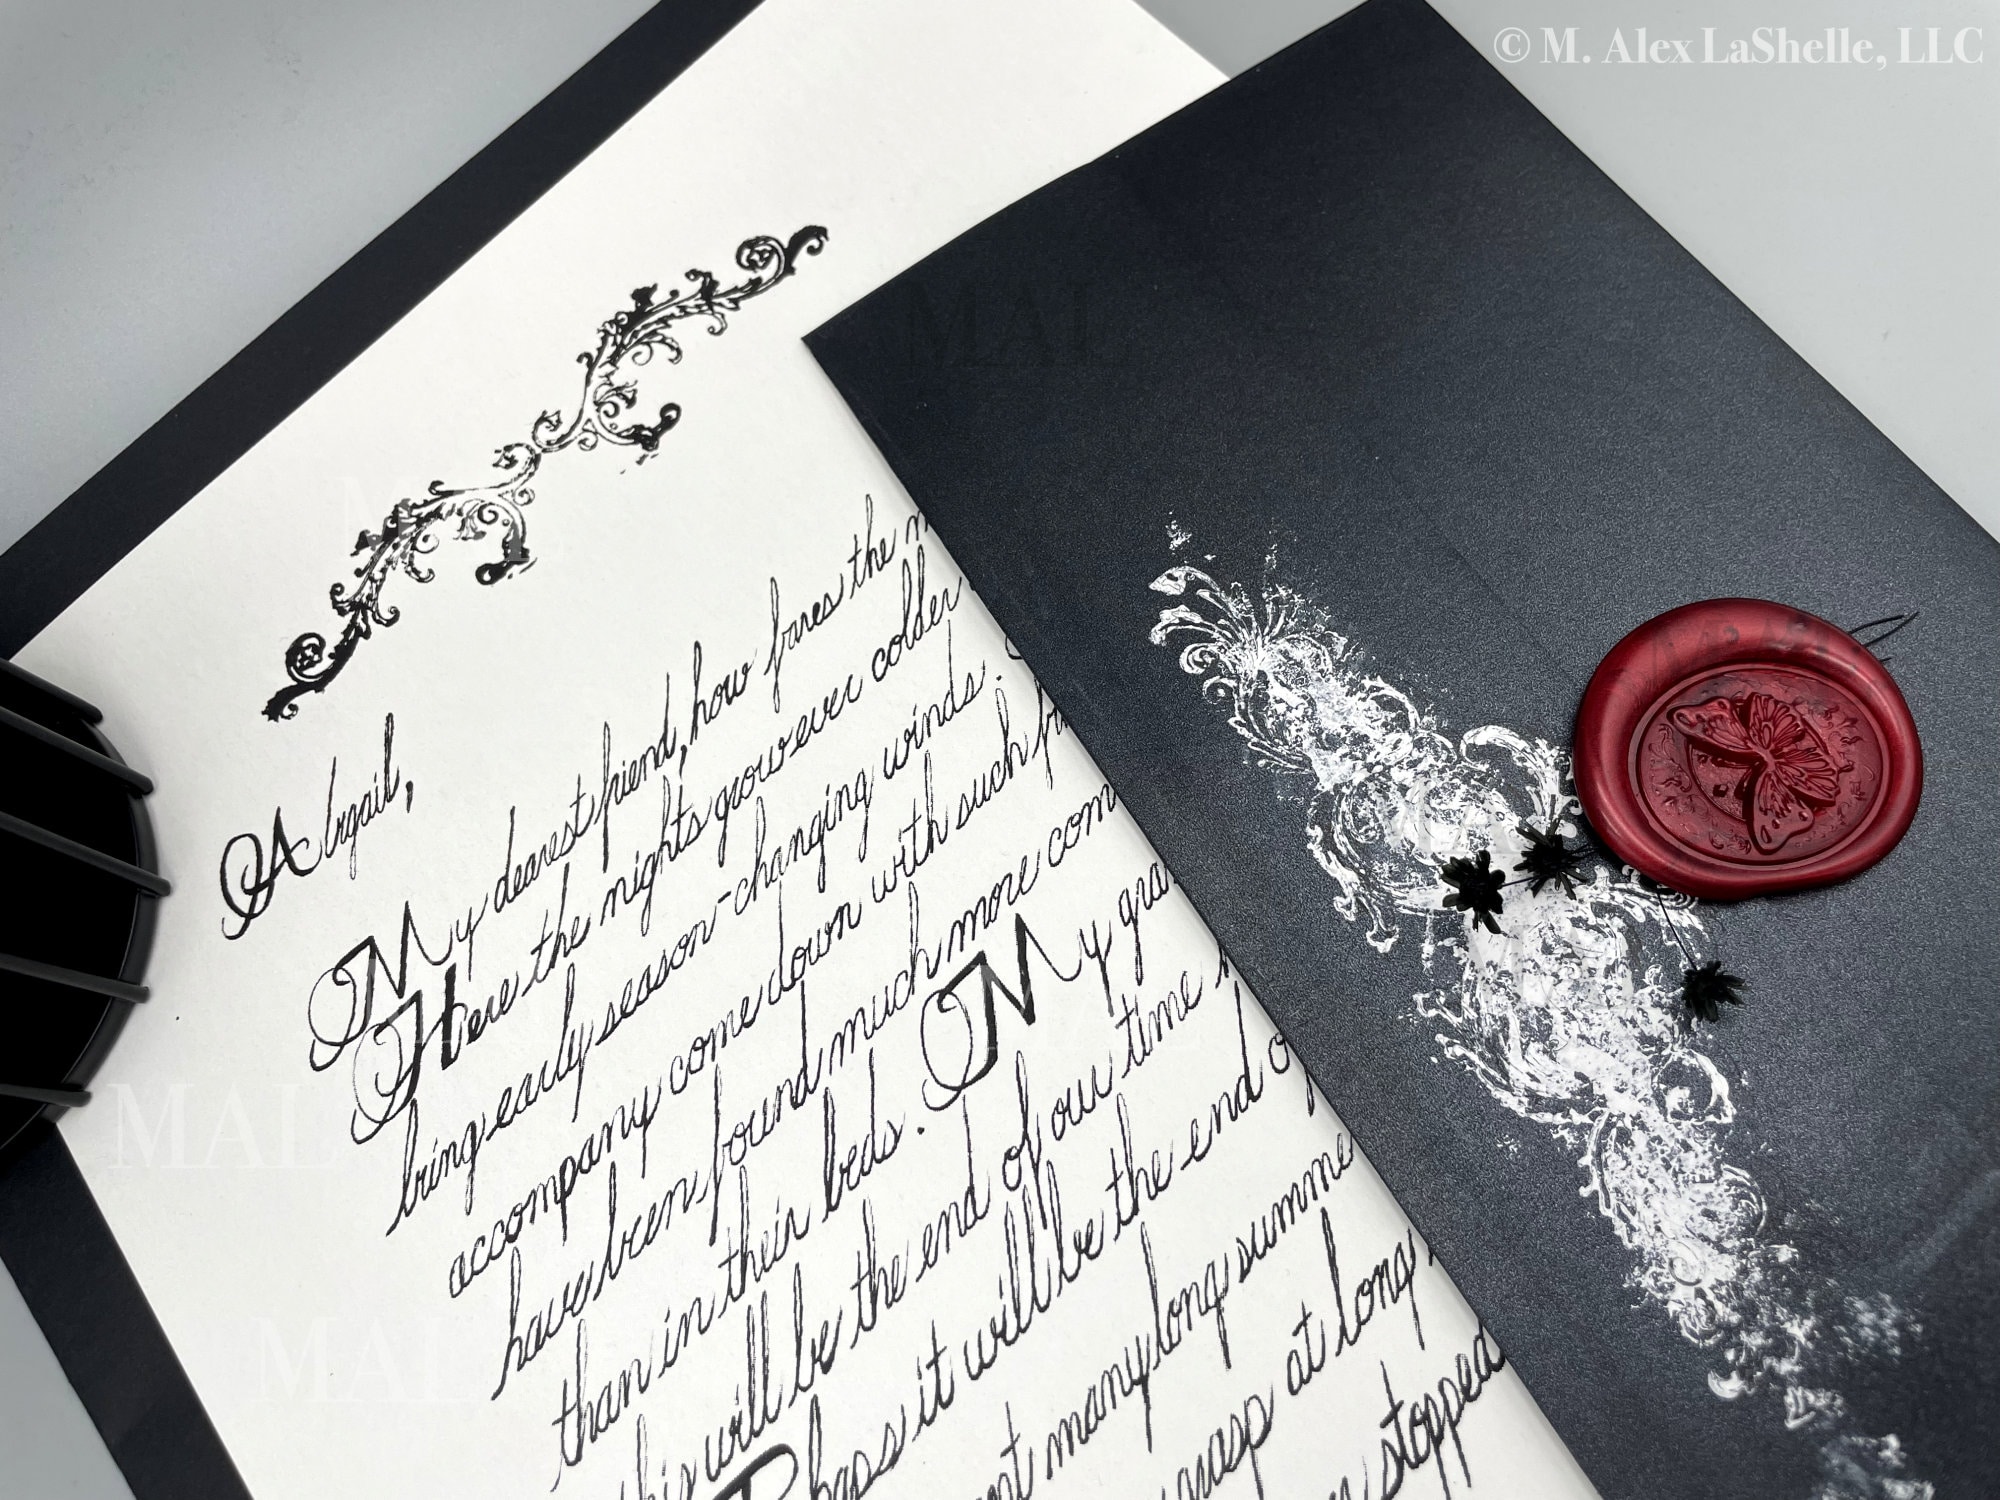 © M. Alex LaShelle, LLC
Abigail,
My dearest friend, how fares the
Here the nights grow ever colder
bring early season-changing winds.
accompany come down with such
have been found much more com
than in their beds. My gra
this will be the end of our time
it will be the end o
many long summe
grasp at long
stopped
MAL
MAL
MAL